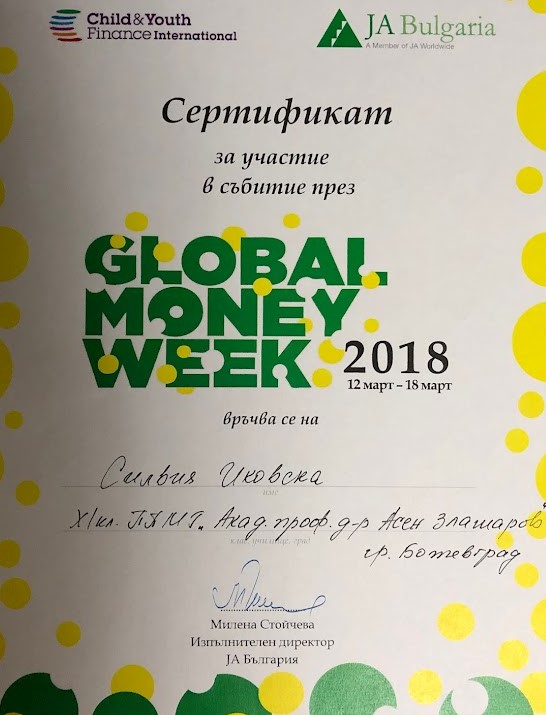 Child & Youth
Finance International
JA Bulgaria
A Member of JA Worldwide
Сертификат
за участие
в събитие през
GLOBAL
MONEY
WEEK 2018
12 март – 18 март
връчва се на
Силвия Иковска
име
XI кл. ПГМТ „Акад. проф. д-р Асен Златаров"
клас, училище, град
гр. Ботевград
Милена Стойчева
Изпълнителен директор
JA България